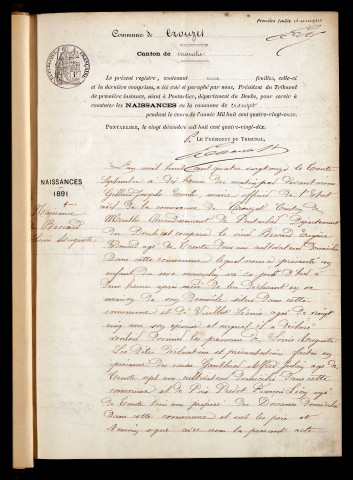 Première feuille et unique
Commune de Crouzet
Canton de Mouthe
Le présent registre, contenant une feuilles, celle-ci
et la dernière comprises, a été coté et paraphé par nous, Président du Tribunal
de première instance, séant à Pontarlier, département du Doubs, pour servir à
constater les NAISSANCES en la commune de Crouzet
pendant le cours de l'année Mil huit cent quatre-vingt-onze.
PONTARLIER, le vingt décembre mil huit cent quatre-vingt-dix.
P. LE PRÉSIDENT DU TRIBUNAL,
NAISSANCES
1891
1er
Naissance
de Berrard
Louis Auguste
L'an mil huit cent quatre vingt onze le trente
Septembre à dix heures du matin par devant nous
Joseph Emile maire officier de l'état
civil de la commune de Crouzet Canton de
Mouthe Arrondissement de Pontarlier Département
du Doubs est comparu le sieur Berrard Eugène
Edmond age de trente Deux ans cultivateur domicilié
Dans cette commune lequel nous a présenté un
enfant du sexe masculin né ce jourd'hui à
heure après midi de lui déclarant en sa
maison de son domicile situé dans cette
commune et de Léonie agée de vingt
cinq ans son épouse et auquel il a déclaré
vouloir donner les prénoms de Louis Auguste
Les dites déclaration et présentation faites en
présence des sieurs Alfred agé de
trente sept ans cultivateur domicilié Dans cette
commune et de François Léon agé
de trente trois ans préposé des Douanes domicilié
Dans cette commune et ont les père et
témoins signé avec nous le présent acte